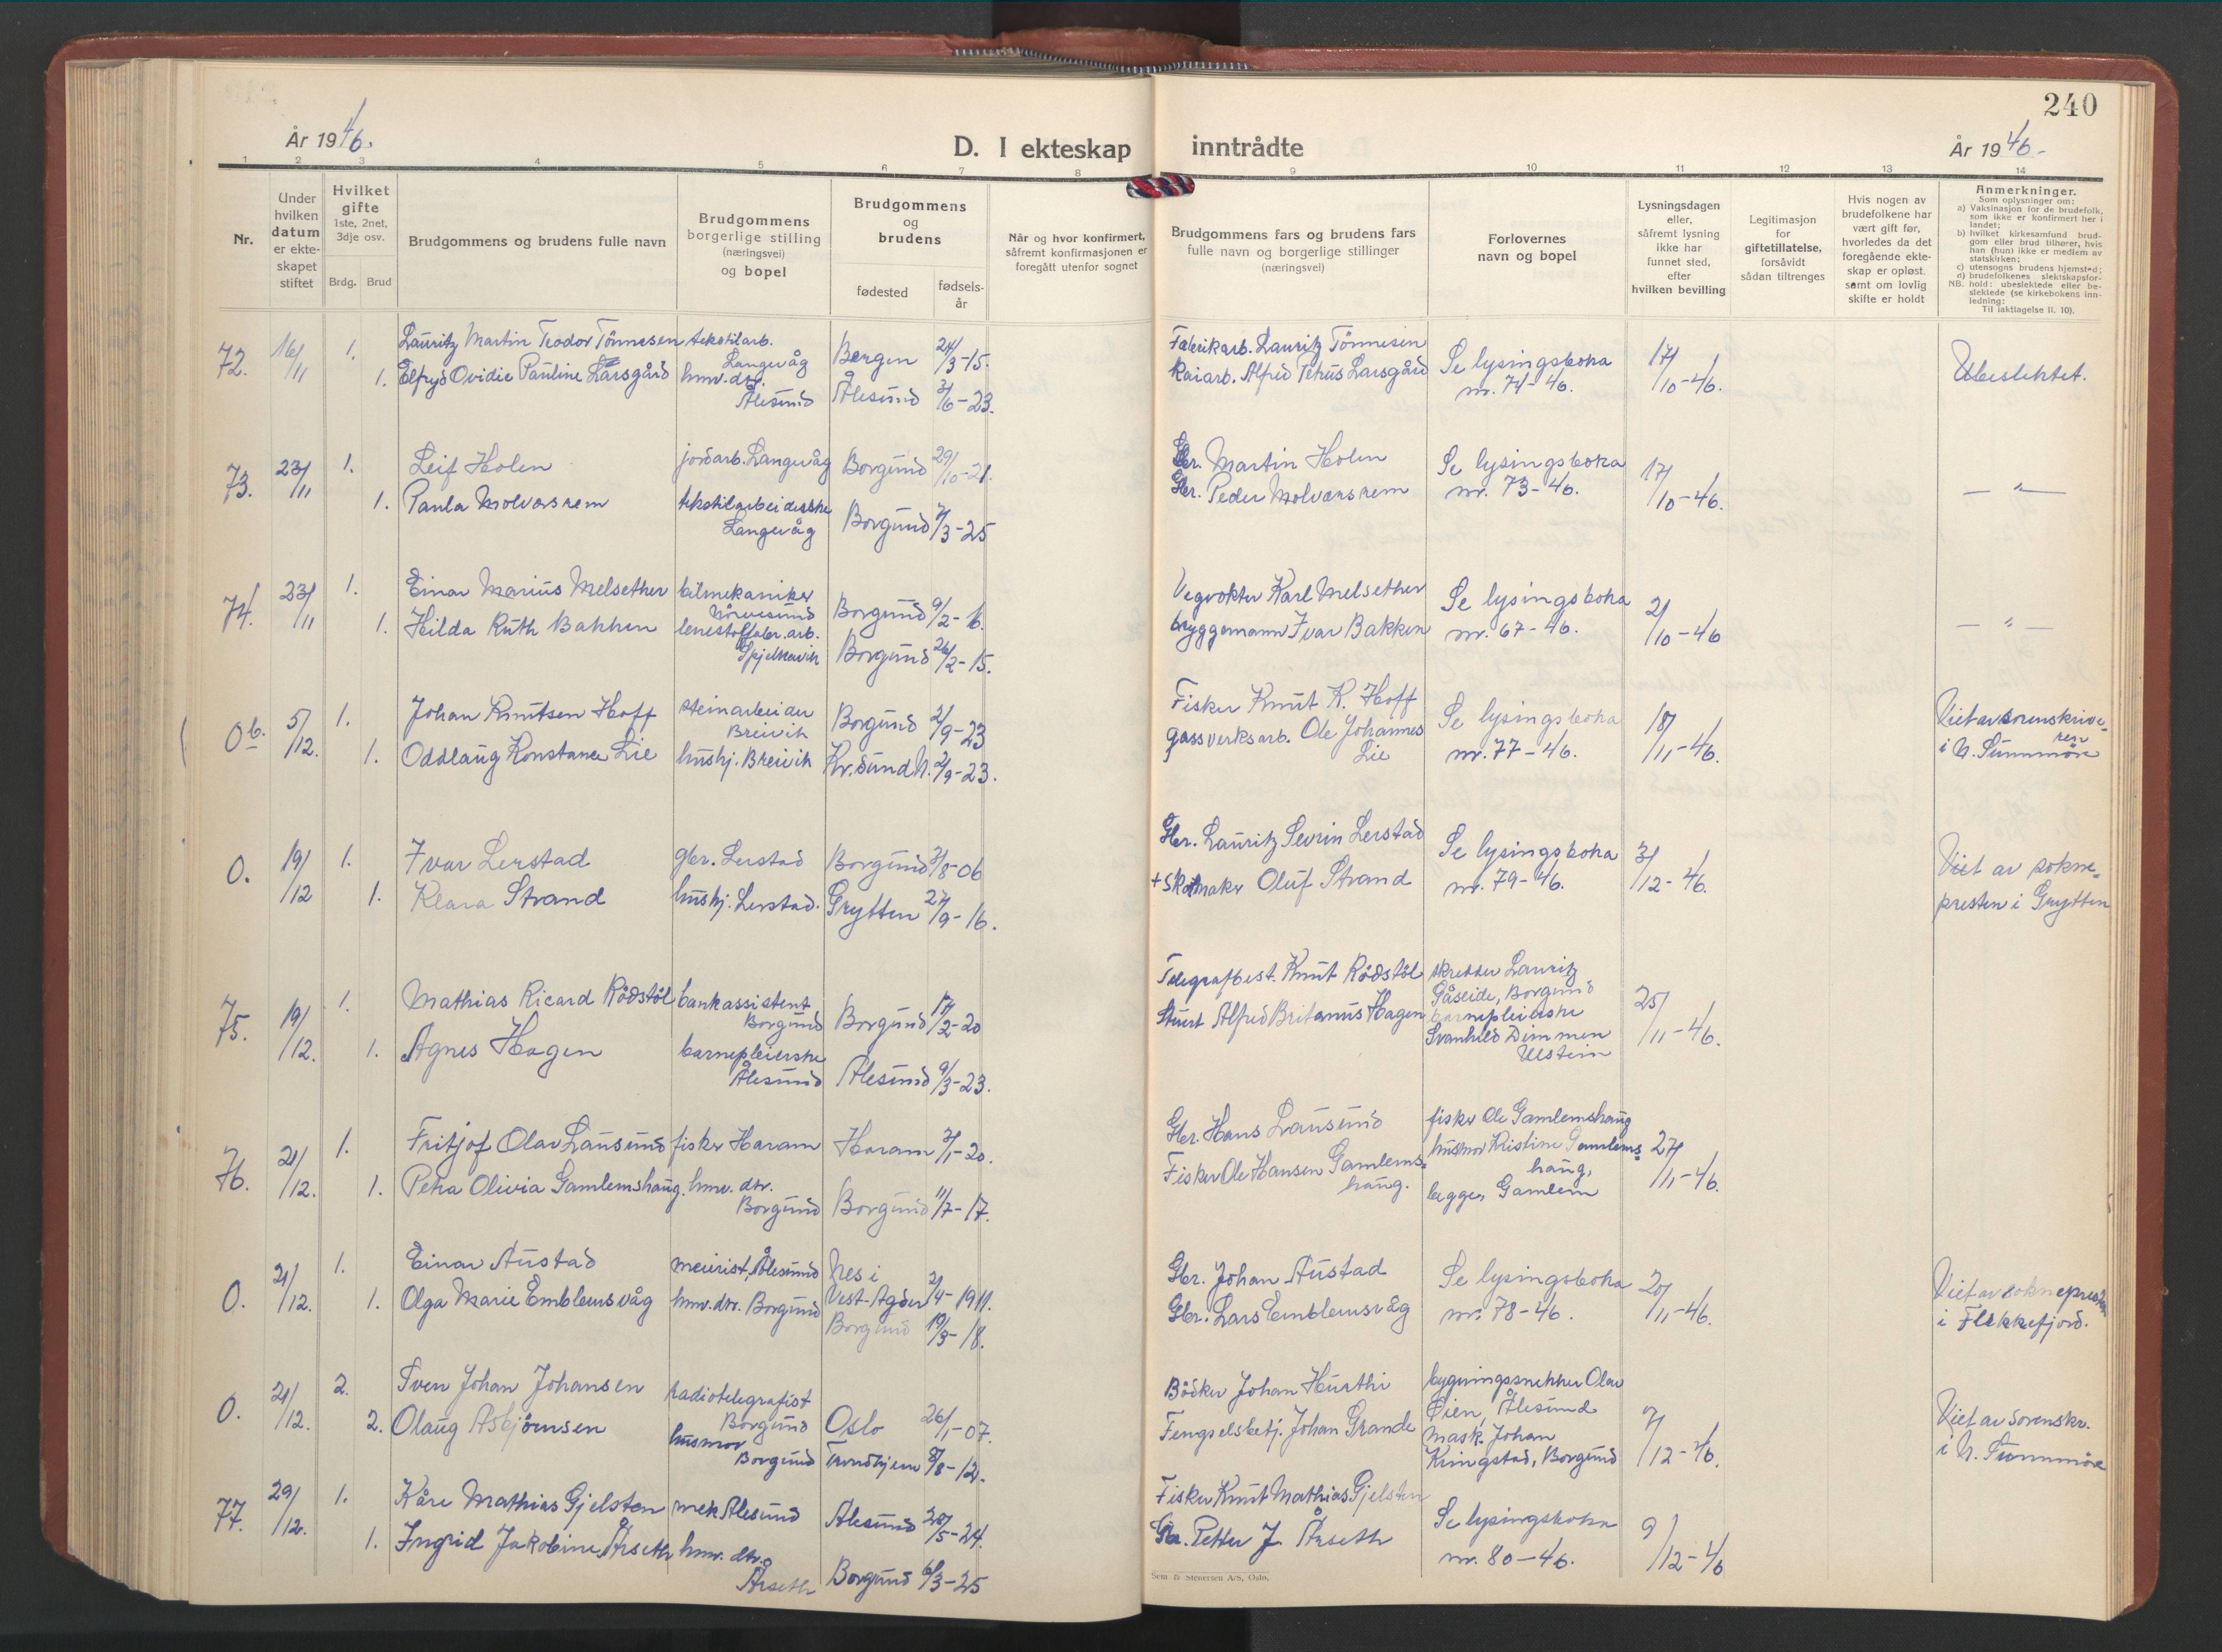 240
År 1946.
D. I ekteskap inntrådte
År 1946-
1 2 3 4 5 6 7 8 9 10 11 12 13 14
Nr.
Under hvilken datum er ekte-skapet stiftet
Hvilket gifte
1ste, 2net, 3dje osv.
Brdg. Brud
Brudgommens og brudens fulle navn
Brudgommens borgerlige stilling (næringsvei) og bopel
Brudgommens og brudens
fødested
fødsels-år
Når og hvor konfirmert, såfremt konfirmasjonen er foregått utenfor sognet
Brudgommens fars og brudens fars fulle navn og borgerlige stillinger (næringsvei)
Forlovernes navn og bopel
Lysningsdagen eller, såfremt lysning ikke har funnet sted, efter hvilken bevilling
Legitimasjon for giftetillatelse, forsåvidt sådan tiltrenges
Hvis nogen av brudefolkene har vært gift før, hvorledes da det foregående ekte-skap er opløst. samt om lovlig skifte er holdt
Anmerkninger.
Som oplysninger om:
a) Vaksinasjon for de brudefolk, som ikke er konfirmert her i landet;
b) hvilket kirkesamfund brud-gom eller brud tilhører, hvis han (hun) ikke er medlem av statskirken;
c) utensogns brudens hjemsted;
d) brudefolkenes slektskapsfor-hold: ubeslektede eller be-slektede (se kirkebokens inn-ledning:
NB.
Til iakttagelse ll. 10).
72. 16/11 1. Lauritz Martin Teodor Tönnesen tekstilarb. Langevåg Bergen 24/3-15. Fabrikarb. Lauritz Tönnesen Se lysingsboka nr. 74-46. 17/10-46. Ubeslektet.
1. Elfryd Ovidie Pauline Larsgård hmv. dtr. Ålesund Ålesund 3/6-23. Kaiarb. Alfred Petrus Larsgård
73. 23/11 1. Leif Holen jordarb. Langevåg Borgund 29/10-21. Gbr. Martin Holen Se lysingsboka nr. 73-46. 17/10-46. — " —
1. Paula Molværsrem tekstilarbeiderske Langevåg Borgund 7/3-25 Gbr. Peder Molværsrem
74. 23/11 1. Einar Marius Melsether bilmekaniker Nørvesund Borgund 9/2-16. Vegvokter Karl Melsether Se lysingsboka nr. 67-46. 2/10-46 — " —
1. Hilda Ruth Bakken lenestolfabr. arb. Spjelkavik Borgund 26/2-15. bryggemann Ivar Bakken
0b. 5/12. 1. Johan Knutsen Hoff steinarbeider Breivik Borgund 2/9-23 Fisker Knut K. Hoff Se lysingsboka nr. 77-46. 18/11-46. Viet av sorenskrive-ren i N. Sunnmöre
1. Oddlaug Konstance Lie hushj. Breivik Kr.sund N. 2/9-23. gassverksarb. Ole Johannes Lie
0. 19/12 1. Ivar Lerstad gbr. Lerstad Borgund 3/8-06 Gbr. Lauritz Sevrin Lerstad Se lysingsboka nr. 79-46. 3/12-46. Viet av sokne-presten i Grytten
1. Klara Strand hushj. Lerstad. Grytten 27/9-16. + Skomaker Oluf Strand
75. 19/12. 1. Mathias Ricard Rödstöl bankassistent Borgund Borgund 17/2-20 Telegrafbest. Knut Rödstöl skredder Lauritz Gåseide, Borgund 25/11-46.
1. Agnes Hagen barnepleierske Ålesund Ålesund 9/3-23. Stuert Alfred Britanus Hagen barnepleierske Svanhild Dimmen Ulstein
76. 21/12. 1. Fritjof Olav Lausund fisker Haram Haram 3/1-20. Gbr. Hans Lausund fisker Ole Gamlemshaug 27/11-46.
1. Petra Olivia Gamlemshaug. hmv. dtr. Borgund Borgund 11/7-17. Fisker Ole Hansen Gamlems-haug. husmor Kristine Gamlems-haug, begge, Gamlem
0. 21/12. 1. Einar Austad meierist, Ålesund Nes i Vest-Agder 2/4-1911. Gbr. Johan Austad Se lysingsboka nr. 78-46. 20/11-46. Viet av soknepresten i Flekkefjord.
1. Olga Marie Emblemsvåg hmv. dtr. Borgund Borgund 19/3-18. Gbr. Lars Emblemsvåg
0. 21/12. 2. Sven Johan Johansen radiotelegrafist Borgund Oslo 26/1-07. Bödker Johan Hurthi bygningssnekker Olav Öien, Ålesund 7/12-46. Viet av Sorenskr. i N. Sunnmöre
2. Olaug Asbjörnsen husmor Borgund Trondhjem 8/8-12. Fengselsbetj. Johan Grande Mask. Johan Kringstad, Borgund
77. 29/12. 1. Kåre Mathias Gjelsten mek Ålesund Ålesund 20/5-24. Fisker Knut Mathias Gjelsten Se lysingsboka nr. 80-46. 9/12-46
1. Ingrid Jakobine Årseth hmv. dtr. Årseth Borgund 6/3-25 Gbr. Petter J. Årseth
Sem & Stenersen A/S, Oslo.